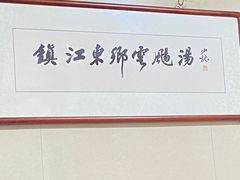 鎮江東鄉雲飈湯